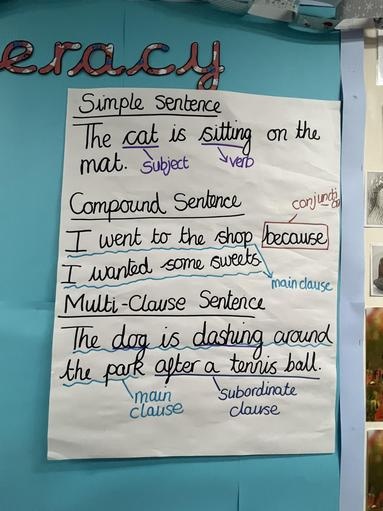 eracy
Simple Sentence
The cat is sitting on the
mat. subject verb
Compound Sentence
conjuncti on
I went to the shop because
I wanted some sweets.
main clause
Multi-Clause Sentence
The dog is dashing around
the park after a tennis ball.
main subordinate
clause clause